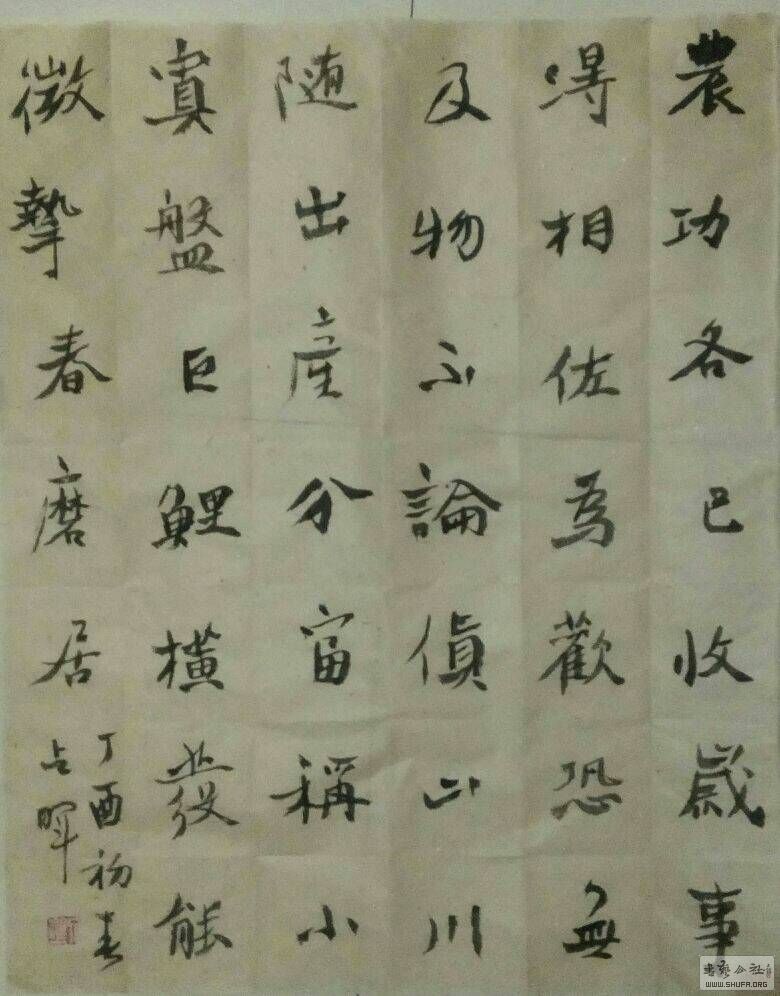 農功各已收歲事
得相佐為歡恐無
及物不論價山川
隨出產分富稱小
寘盤巨鯉橫發能
微摯春磨居
丁酉初春
占暉
WWW.SHUFA.ORG